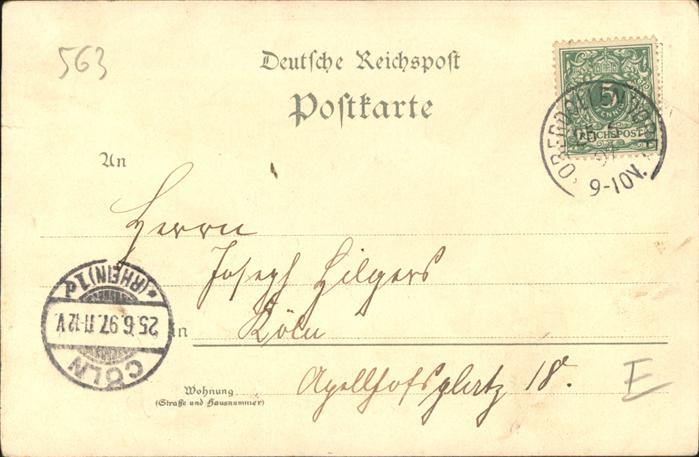 563
Deutsche Reichspost
Postkarte
5
REICHSPOST
OBERDOLLENDORF
9-10V.
An
Herrn
Joseph Hilgers
in
Köln
CÖLN
25.6.97.11-12V.
*(RHEIN)1d
Wohnung
(Straße und Hausnummer)
Apellhofsplatz 18.
E